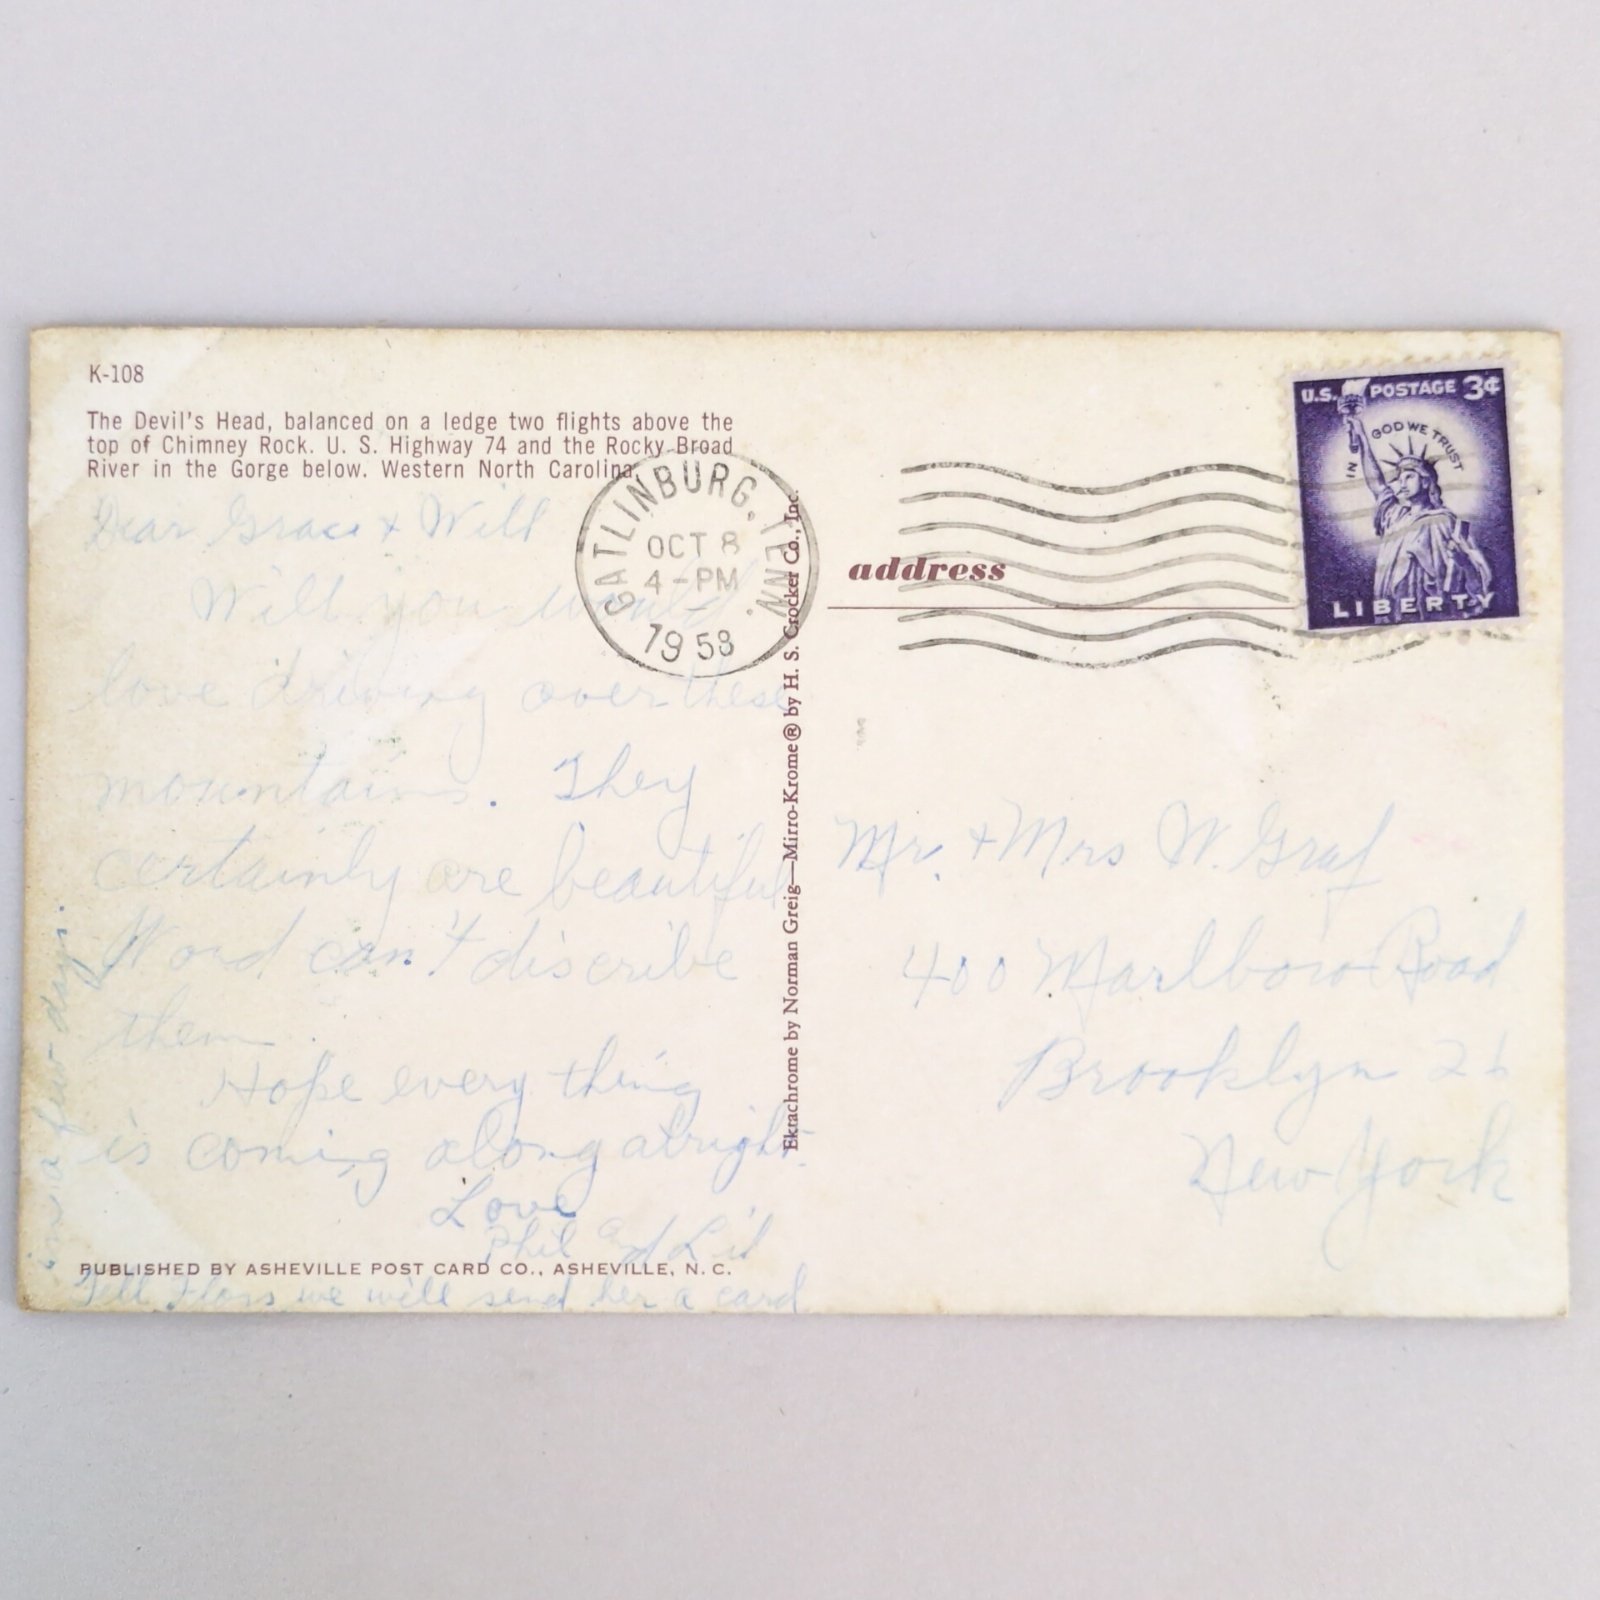 K-108
The Devil's Head, balanced on a ledge two flights above the
top of Chimney Rock. U. S. Highway 74 and the Rocky Broad
River in the Gorge below. Western North Carolina
Dear Grace + Will
Will you would
love driving over these
mountains. They
certainly are beautiful
Word can't discribe
them.
Hope every thing
is coming along alright.
Love
Phil and Lil
PUBLISHED BY ASHEVILLE POST CARD CO., ASHEVILLE, N. C.
Tell Floss we will send her a card
in a few days.
GATLINBURG, TENN.
OCT 8
4-PM
1958
Ektachrome by Norman Greig—Mirro-Krome® by H. S. Crocker Co., Inc.
address
U.S. POSTAGE 3¢
IN GOD WE TRUST
LIBERTY
Mr. + Mrs W. Graf
400 Marlboro Road
Brooklyn 26
New York